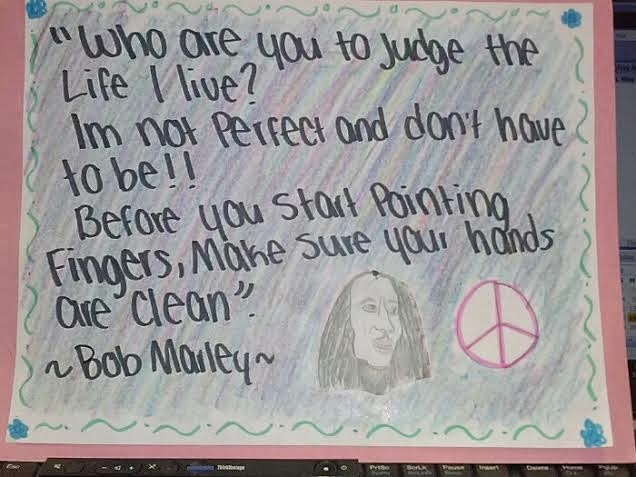 "Who are you to Judge the
Life I live?
Im not Perfect and don't have
to be!!
Before you Start Pointing
Fingers, Make Sure your hands
are clean".
~Bob Marley~
Esc
ThinkVantage
PrtSc
ScrLk
Pause
Insert
Delete
Home
PgUp